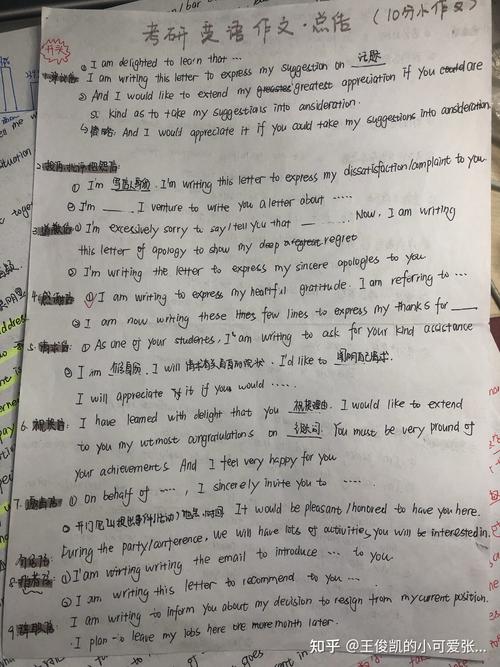 考研英语作文·总结 (10分小作文)
开头
① I am delighted to learn that …
1.建议信 I am writing this letter to express my suggestion on 话题
② And I would like to extend my greatest appreciation if you could are
so kind as to take my suggestions into ansideration.
简略: And I would appreciate it if you could take my suggestions into ansideration
① I'm 写信人身份. I'm writing this letter to express my dissatisfaction/complaint to you
② I'm ____. I venture to write you a letter about ……
3.道歉信 ① I'm excessively sorry to say/tell you that ____. Now, I am writing
this letter of apology to show my deep regret
② I'm writing the letter to express my sincere apologies to you
4.感谢信 ① I am writing to express my heartful gratitude. I am referring to …
② I am now writing these lines few lines to express my thanks for ____
5.请求信 ① As one of your students, I am writing to ask for your kind assistance
② I am 你的身份. I will 请求有关的现状. I'd like to 阐明自己请求.
I will appreciate it if you would …..
6.祝贺信 I have learned with delight that you 祝贺理由. I would like to extend
to you my utmost congratulations on 引致词. You must be very pround of
your achievements And I feel very happy for you
7.邀请信 ① on behalf of …., I sincerely invite you to …..
② 开门见山提出事件(活动)地点,时间 It would be pleasant/honored to have you here.
During the party/conference, we will have lots of activities, you will be interested in.
8.推荐信 ① I'am wirting writing the email to introduce … to you
② I am writing this letter to recommend to you ….
9.辞职信 I am writing to inform you about my decision to resign from my current position.
I plan to leave my jobs here one more month later.
知乎 @王俊凯的小可爱张...